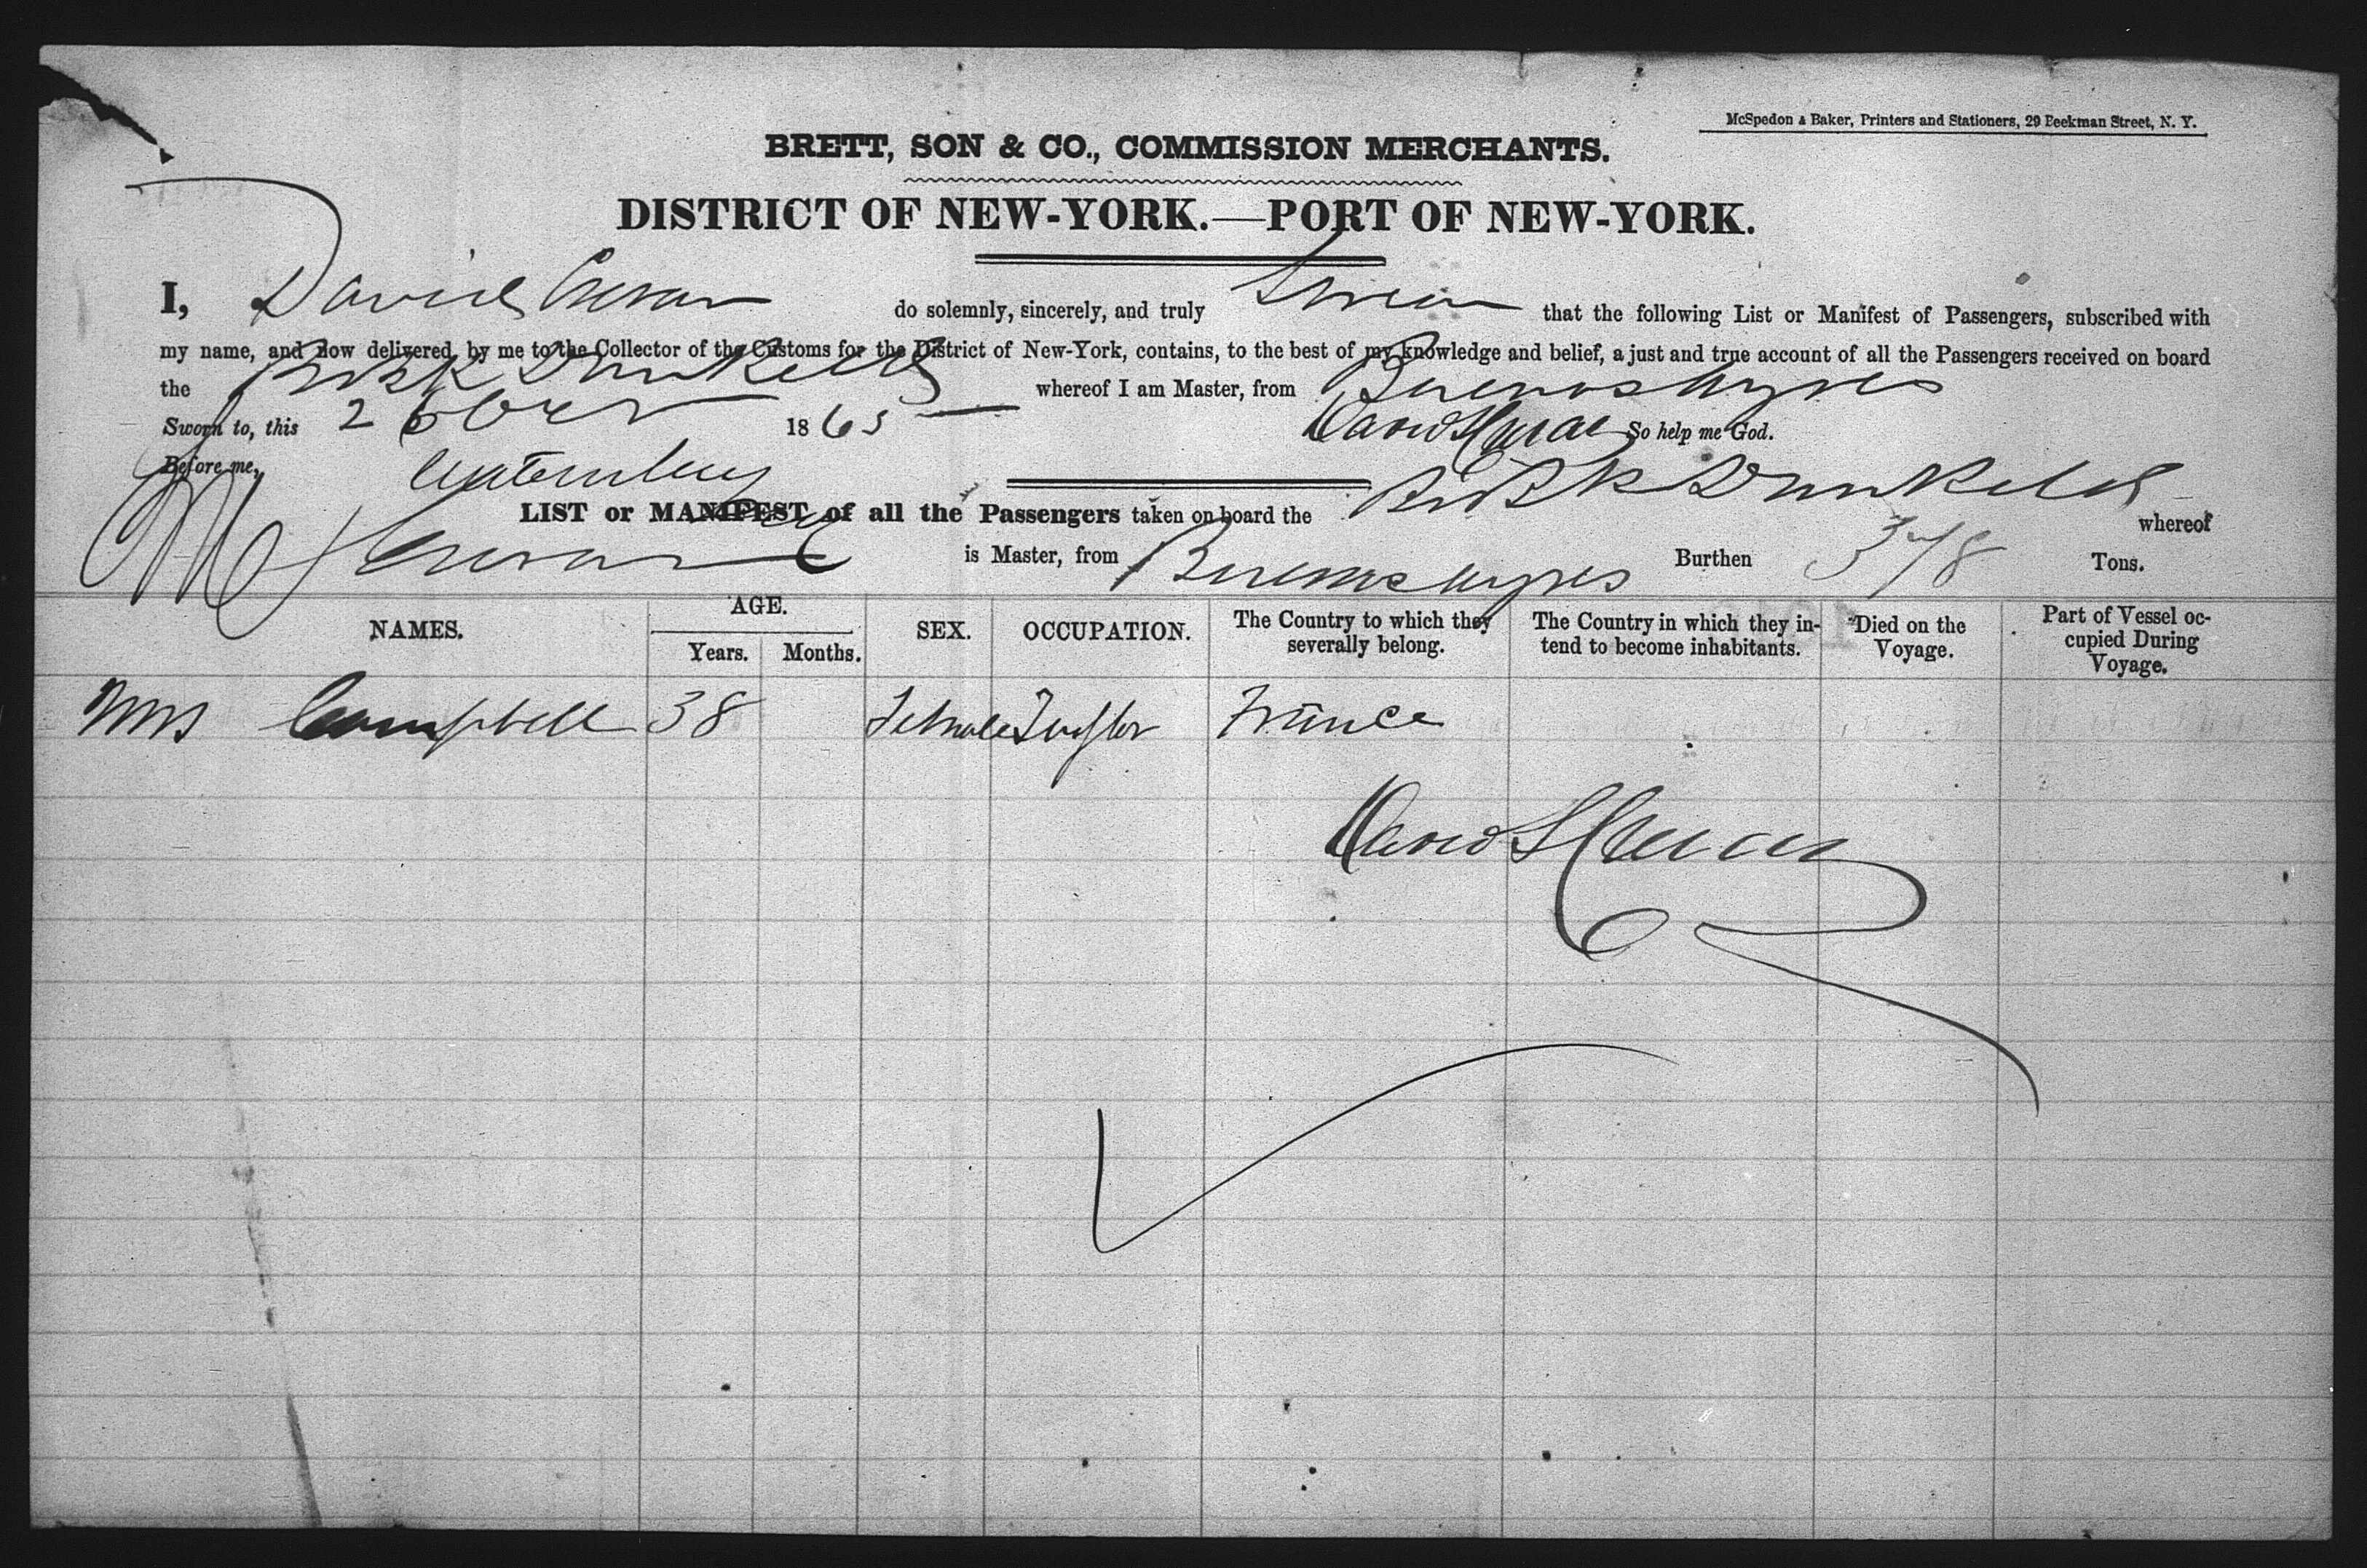 McSpedon & Baker, Printers and Stationers, 29 Beekman Street, N. Y.
BRETT, SON & CO., COMMISSION MERCHANTS.
DISTRICT OF NEW-YORK.—PORT OF NEW-YORK.
I, David do solemnly, sincerely, and truly Swear that the following List or Manifest of Passengers, subscribed with
my name, and now delivered by me to the Collector of the Customs for the District of New-York, contains, to the best of my knowledge and belief, a just and true account of all the Passengers received on board
the Dunkeld whereof I am Master, from Buenos Ayres
Sworn to, this 2 1865 David So help me God.
Before me,
LIST or MANIFEST of all the Passengers taken on board the Dunkeld whereof
is Master, from Buenos Ayres Burthen 378 Tons.
NAMES. AGE. Years. Months. SEX. OCCUPATION. The Country to which they severally belong. The Country in which they intend to become inhabitants. Died on the Voyage. Part of Vessel occupied During Voyage.
Mrs Campbell 38 Female France
David